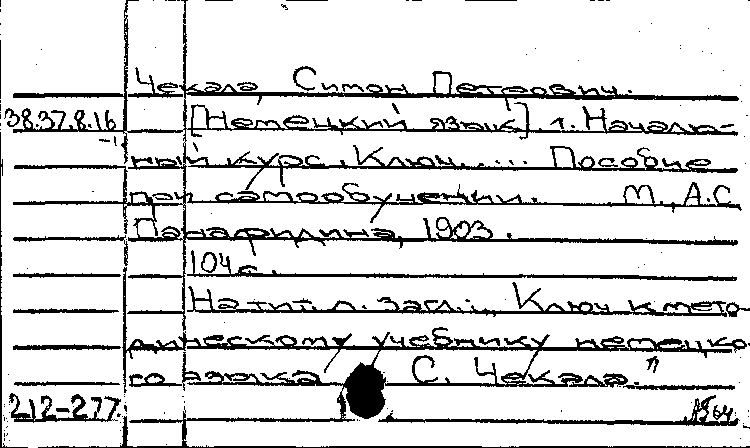 Чекала, Симон Петрович.
38.37.8.16 [Немецкий язык]. 1. Началь-
ный курс. Ключ..... Пособие
при самообучении. М., А.С.
Панафидина, 1903.
104 с.
На тит. л. загл.: „Ключ к мето-
дическому учебнику немецко-
го языка С. Чекала."
212-277